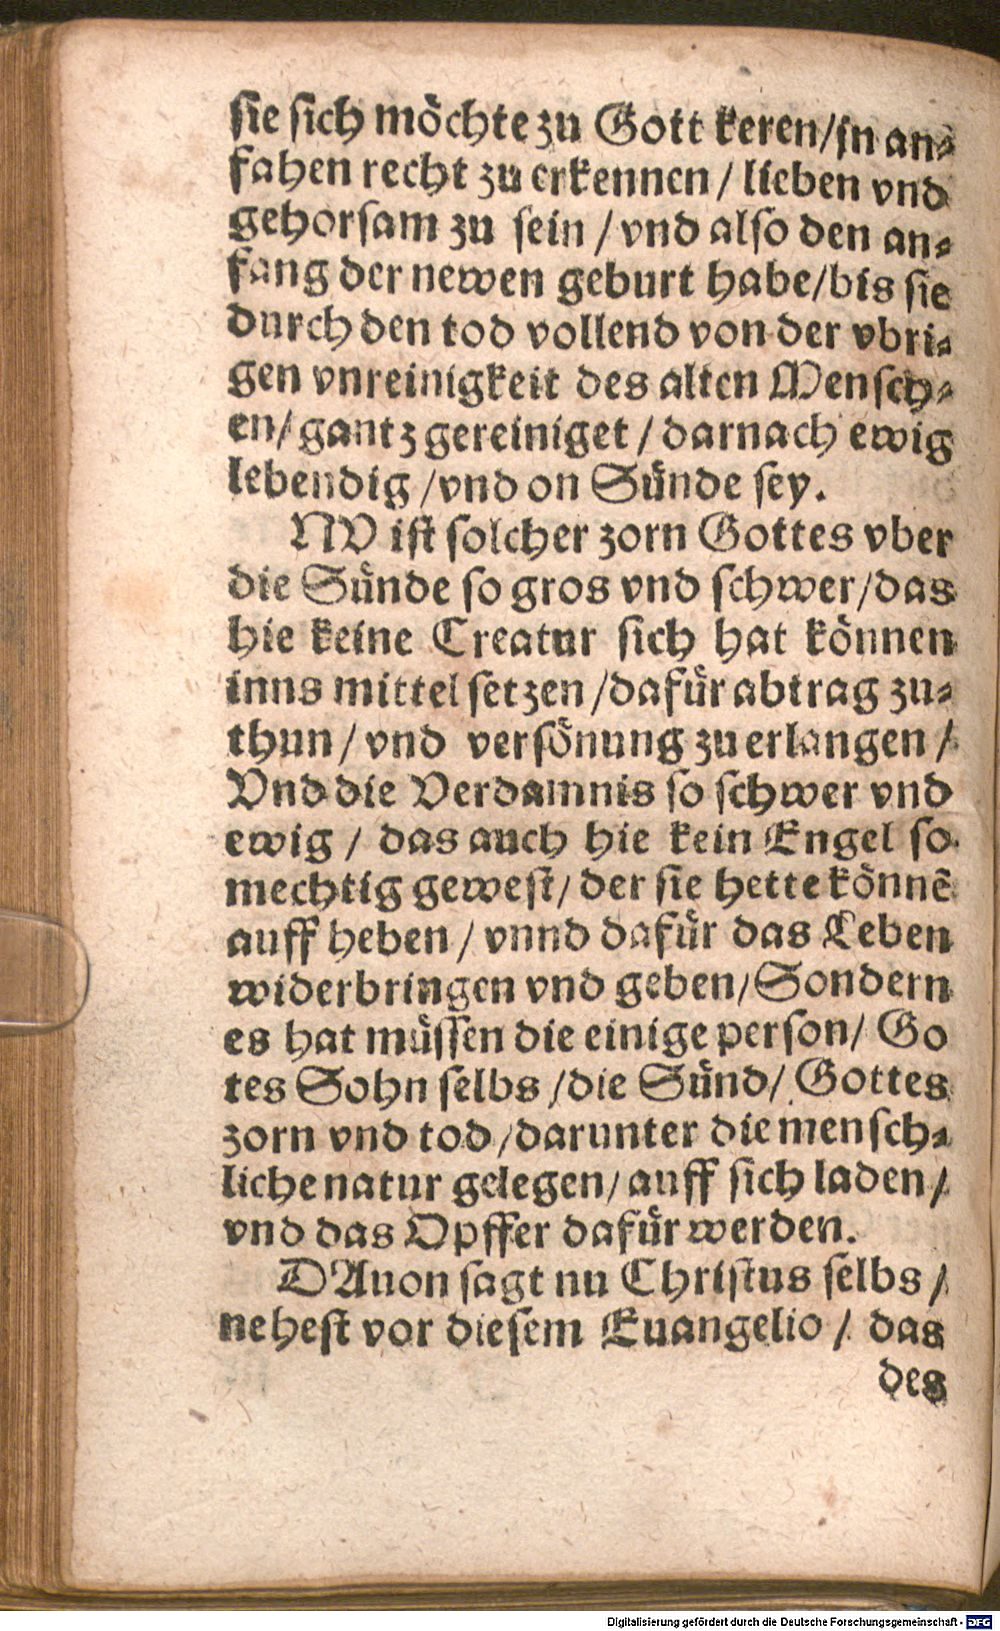 sie sich möchte zu Gott keren/jn an⸗
fahen recht zu erkennen / lieben vnd
gehorsam zu sein / vnd also den an⸗
fang der newen geburt habe/bis sie
durch den tod vollend von der vbri⸗
gen vnreinigkeit des alten Mensch⸗
en/gantz gereiniget / darnach ewig
lebendig /vnd on Sünde sey.
NV ist solcher zorn Gottes vber
die Sünde so gros vnd schwer/das
hie keine Creatur sich hat können
inns mittel setzen /dafür abtrag zu⸗
thun / vnd versönung zu erlangen /
Vnd die Verdamnis so schwer vnd
ewig / das auch hie kein Engel so
mechtig gewest/ der sie hette könnē
auff heben / vnnd dafür das Leben
widerbringen vnd geben/Sondern
es hat müssen die einige person/ Go
tes Sohn selbs /die Sünd/ Gottes
zorn vnd tod/darunter die mensch⸗
liche natur gelegen/auff sich laden/
vnd das Opffer dafür werden.
DAuon sagt nu Christus selbs /
nehest vor diesem Euangelio / das
des
Digitalisierung gefördert durch die Deutsche Forschungsgemeinschaft - DFG